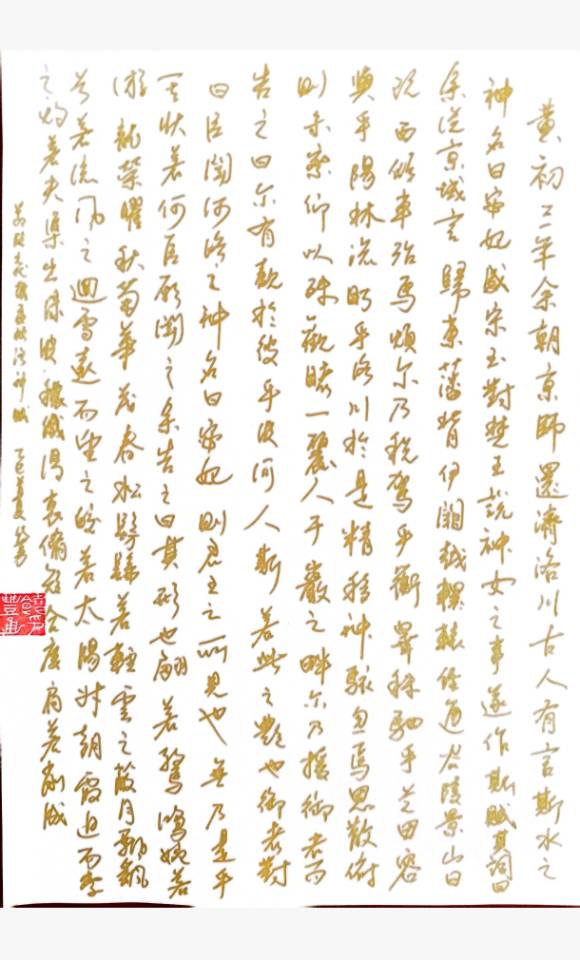 黄初三年余朝京師還濟洛川古人有言斯水之
神名曰宓妃感宋玉對楚王說神女之事遂作斯賦其詞曰
余從京域言歸東藩背伊闕越轘轅經通谷陵景山日
既西傾車殆馬煩爾乃稅駕乎蘅皋秣駟乎芝田容
與乎陽林流眄乎洛川於是精移神駭忽焉思散俯
則未察仰以殊觀睹一麗人于巖之畔爾乃援御者而
告之曰爾有覿於彼乎彼何人斯若此之艷也御者對
曰臣聞河洛之神名曰宓妃則君王之所見也無乃是乎
其狀若何臣願聞之余告之曰其形也翩若驚鴻婉若
游龍榮曜秋菊華茂春松髣髴若輕雲之蔽月飄飖
兮若流風之迴雪遠而望之皎若太陽升朝霞迫而察
之灼若芙蕖出淥波穠纖得衷脩短合度肩若削成
洛神賦 夏